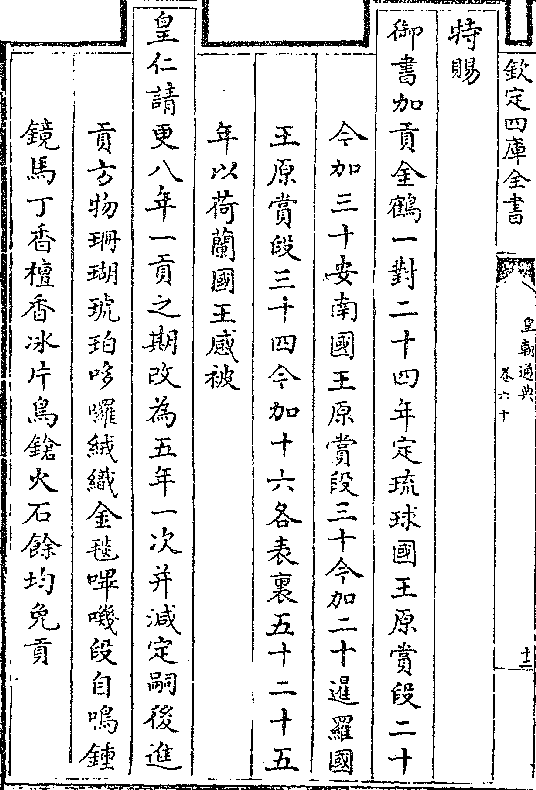 欽定四庫全書
皇朝通典
卷六十
十二
特賜
御書加貢金鶴一對二十四年定琉球國王原賞段二十
今加三十安南國王原賞段三十今加二十暹羅國
王原賞段三十四今加十六各表裏五十二十五
年以荷蘭國王感被
皇仁請更八年一貢之期改為五年一次并減定嗣後進
貢方物珊瑚琥珀哆囉絨織金毯嗶嘰段自鳴鍾
鏡馬丁香檀香冰片鳥鎗火石餘均免貢